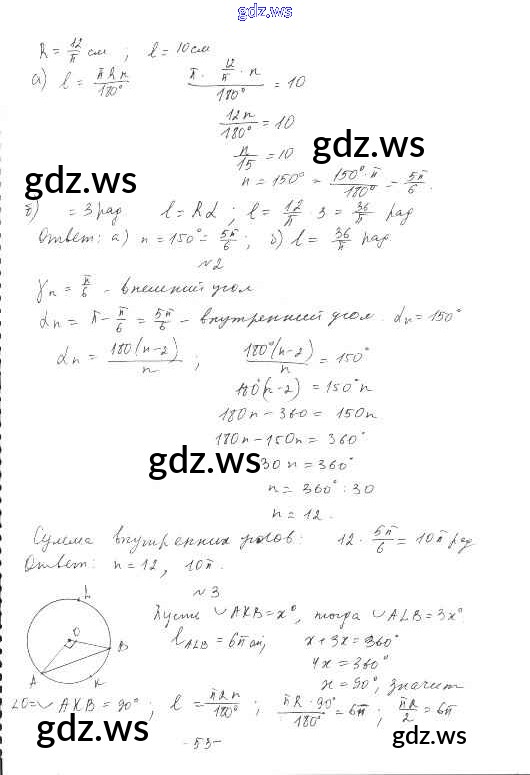 gdz.ws
R = 12/π см ; l = 10 см
а) l = πRn/180° π · 12/π · n / 180° = 10
12n/180° = 10
n/15 = 10
gdz.ws
gdz.ws
n = 150° = 150°·π/180° = 5π/6.
б) = 3 рад l = Rα ; l = 12/π · 3 = 36/π рад
Ответ: а) n = 150° = 5π/6 ; б) l = 36/π рад.
№2
γn = π/6 - внешний угол
αn = π - π/6 = 5π/6 - внутренний угол. αn = 150°
αn = 180(n-2)/n ; 180°(n-2)/n = 150°
180°(n-2) = 150°n
180n - 360 = 150n
180n - 150n = 360°
gdz.ws
30n = 360°
n = 360° : 30
n = 12.
Сумма внутренних углов: 12 · 5π/6 = 10π рад
Ответ: n = 12, 10π.
№3
Пусть ∪AKB = x°, тогда ∪ALB = 3x°
l ALB = 6π см, x + 3x = 360°
4x = 360°
x = 90°, значит
L
O
B
A
K
∠O = ∪AKB = 90° ; l = πRn/180° ; πR·90°/180° = 6π ; πR/2 = 6π
gdz.ws
gdz.ws
- 53 -